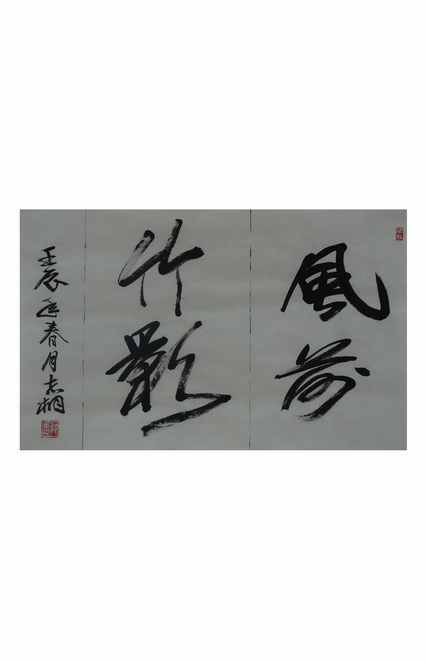 風前
竹影
壬辰年春月志